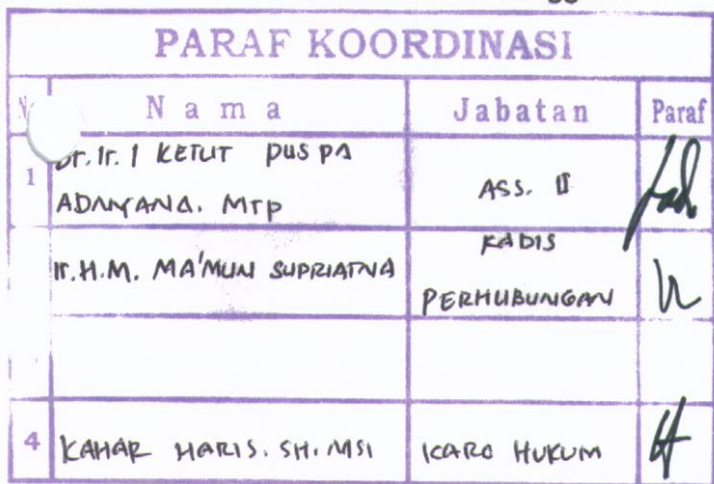 PARAF KOORDINASI
N Nama Jabatan Paraf
1 Dr. Ir. I KETUT PUSPA
ADNYANA. MTP ASS. II
Ir. H.M. MA'MUN SUPRIATNA KADIS
PERHUBUNGAN
4 KAHAR HARIS. SH. MSI KARO HUKUM